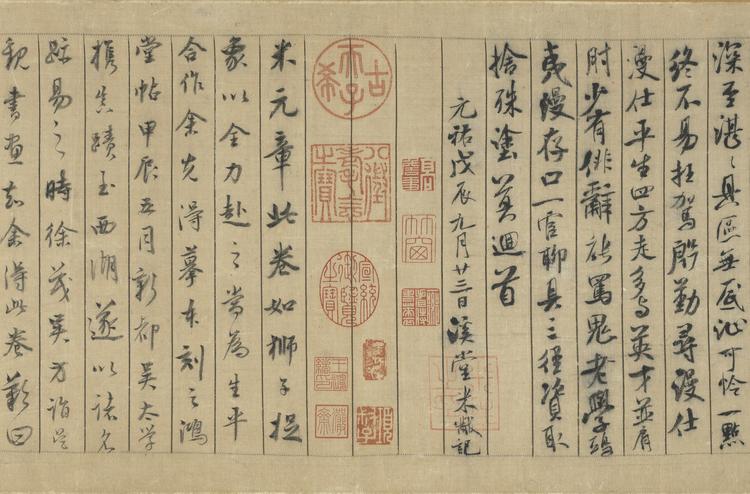 深至湛〻具區無底沚可怜一點
終不易枉駕殷勤尋漫仕
漫仕平生四方走多与英才並肩
肘少有俳辭能罵鬼老學鴟
夷漫存口一官聊具三徑資取
捨殊塗莫迴首
元祐戊辰九月廿三日溪堂米黻記
竹窗
古希天子
八徵耄念之寶
宣統御覽之寶
米元章此卷如獅子捉
象以全力赴之當為生平
合作余先得摹本刻之鴻
堂帖甲辰五月新都吳太學
攜真蹟至西湖遂以諸名
跡易之時徐茂吳方詣吳
觀書畫知余得此卷歎曰